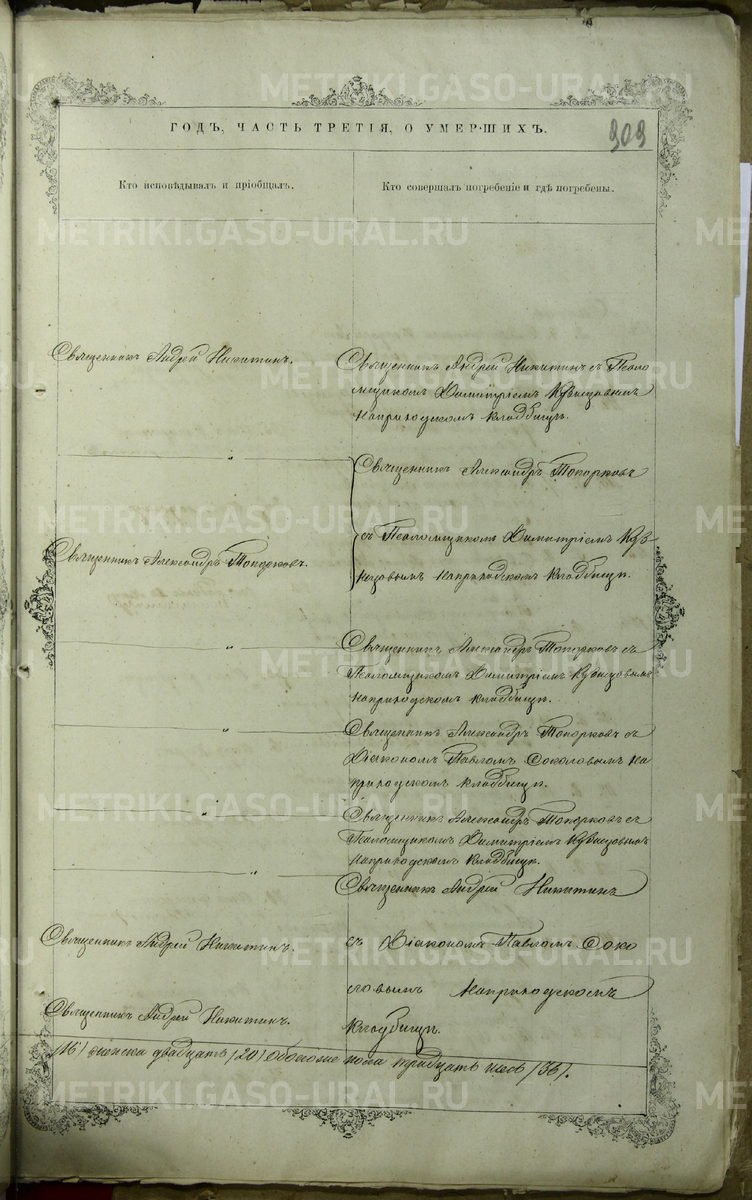 METRIKI.GASO-URAL.RU
ГОДЪ, ЧАСТЬ ТРЕТІЯ, О УМЕРШИХЪ.
309
Кто исповѣдывалъ и пріобщалъ.
Кто совершалъ погребеніе и гдѣ погребены.
Священникъ Андрей Никитинъ.
Священникъ Андрей Никитинъ съ Псало
мщикомъ Димитріемъ
на приходскомъ кладбищѣ.
Священникъ Александръ Топорковъ
Священникъ Александръ Топорковъ.
съ Псаломщикомъ Димитріемъ
на приходскомъ кладбищѣ.
Священникъ Александръ Топорковъ съ
Псаломщикомъ Димитріемъ
на приходскомъ кладбищѣ.
Священникъ Александръ Топорковъ съ
Діакономъ Павломъ Соколовымъ на
приходскомъ кладбищѣ.
Священникъ Александръ Топорковъ съ
Псаломщикомъ Димитріемъ
на приходскомъ кладбищѣ.
Священникъ Андрей Никитинъ
Священникъ Андрей Никитинъ.
съ Діакономъ Павломъ Соко
ловымъ на приходскомъ
Священникъ Андрей Никитинъ.
кладбищѣ.
/16/ женска двадцать /20/ обоего пола тридцать /36/.